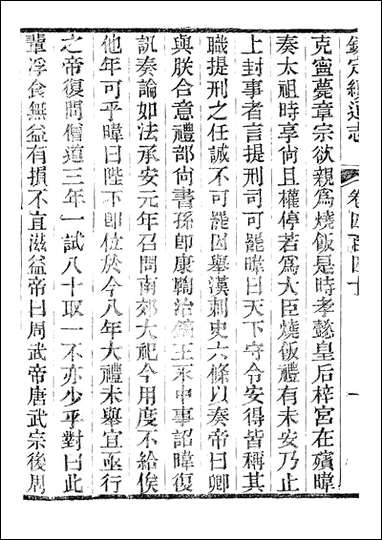 欽定續通志 卷四百四十 一
克寧薨章宗欲親爲燒飯是時孝懿皇后梓宮在殯暐
奏太祖時享尚且權停若爲大臣燒飯禮有未安乃止
上封事者言提刑司可罷暐曰天下守令安得皆稱其
職提刑之任誠不可罷因舉漢刺史六條以奏帝曰卿
與朕合意禮部尚書孫即康鞫治鎬王永中事詔暐復
訊奏論如法承安元年召問南郊大祀今用度不給俟
他年可乎暐曰陛下即位於今八年大禮未舉宜亟行
之帝復問僧道三年一試八十取一不亦少乎對曰此
輩浮食無益有損不宜滋益帝曰周武帝唐武宗後周